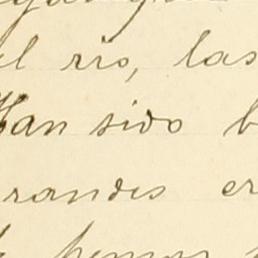 el río, las
Han sido b
randes er
hemos